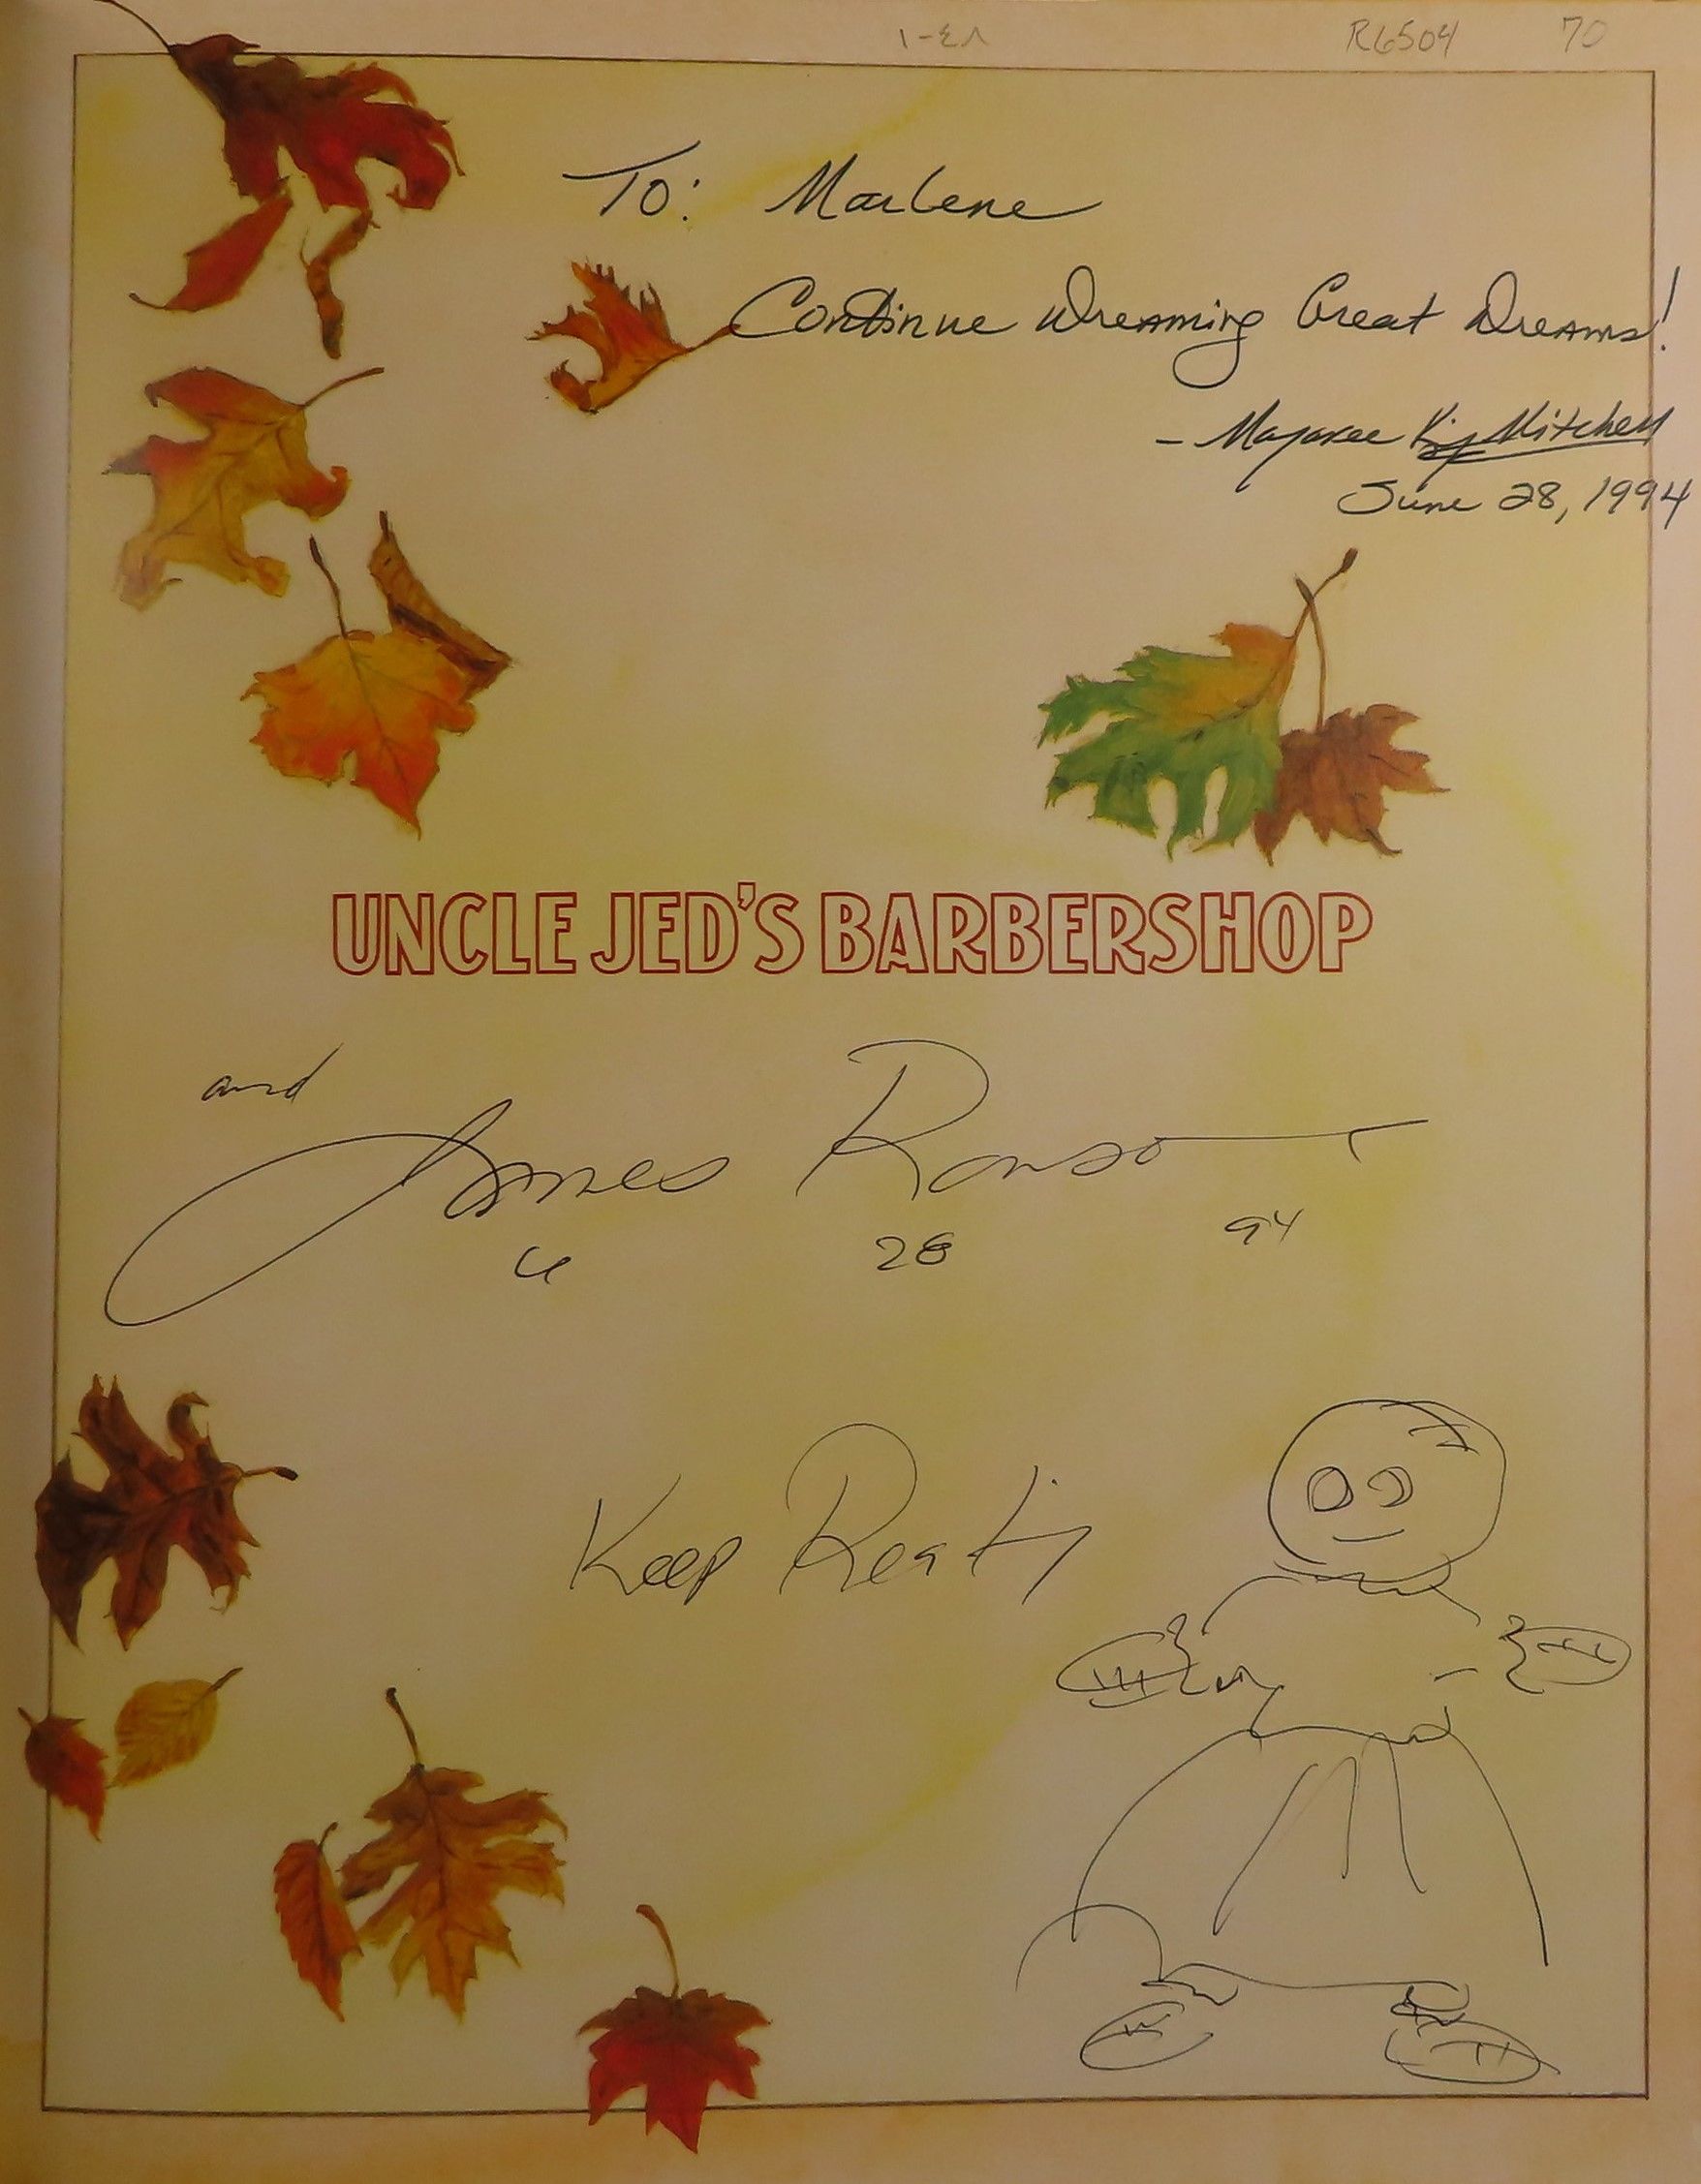 R6504 70
To: Marlene
Continue Dreaming Great Dreams!
- Margaree King Mitchell
June 28, 1994
UNCLE JED'S BARBERSHOP
and
James Ransome
6 28 94
Keep Reading